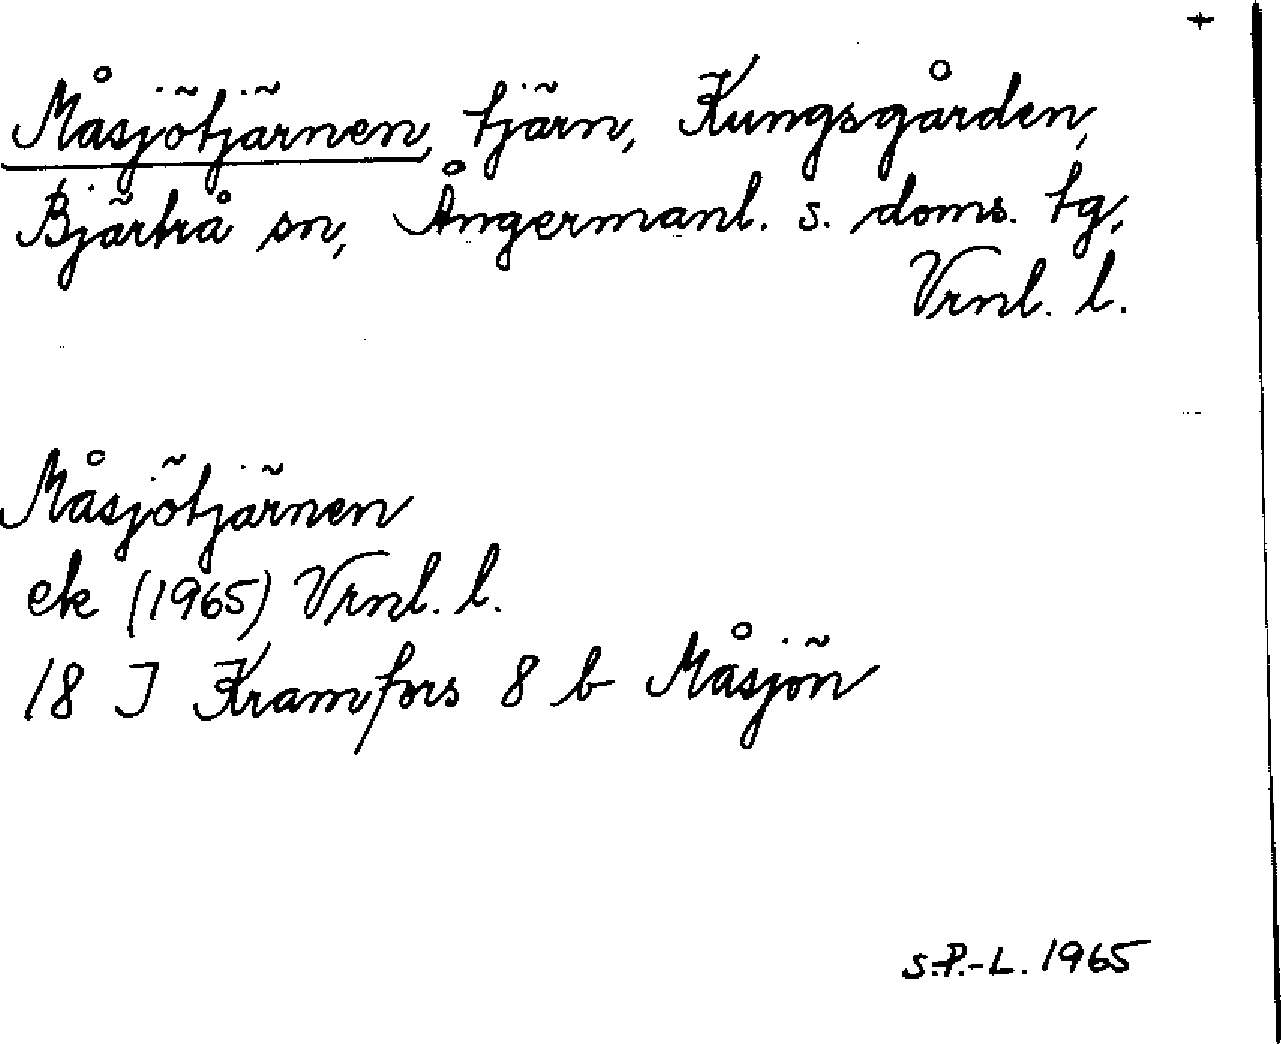 +
Måsjötjärnen, tjärn, Kungsgården,
Bjärtrå sn, Ångermanl. s. doms. tg,
Vrnl. l.
Måsjötjärnen
ek (1965) Vrnl. l.
18 I Kramfors 8 b Måsjön
S.P.-L. 1965